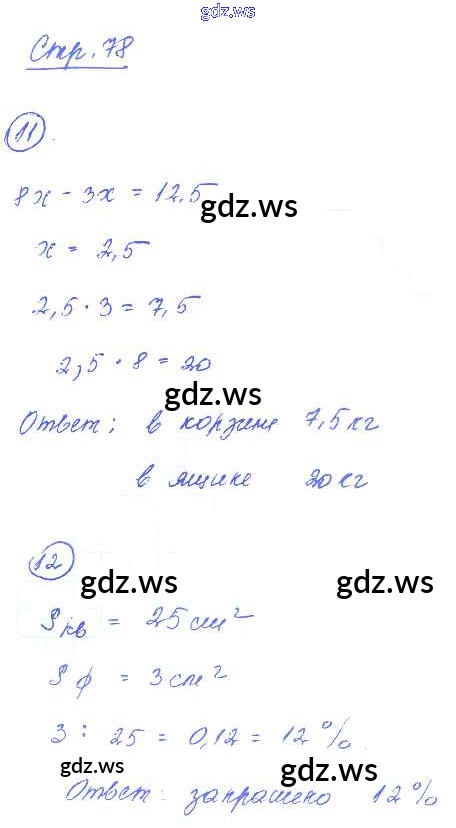 gdz.ws
Стр. 78
11.
8x - 3x = 12,5
gdz.ws
x = 2,5
2,5 · 3 = 7,5
2,5 · 8 = 20
gdz.ws
Ответ; в корзине 7,5 кг
в ящике 20 кг
12
gdz.ws gdz.ws
Sкв = 25 см²
Sф = 3 см²
3 : 25 = 0,12 = 12 %.
gdz.ws gdz.ws
Ответ: запрашено 12 %